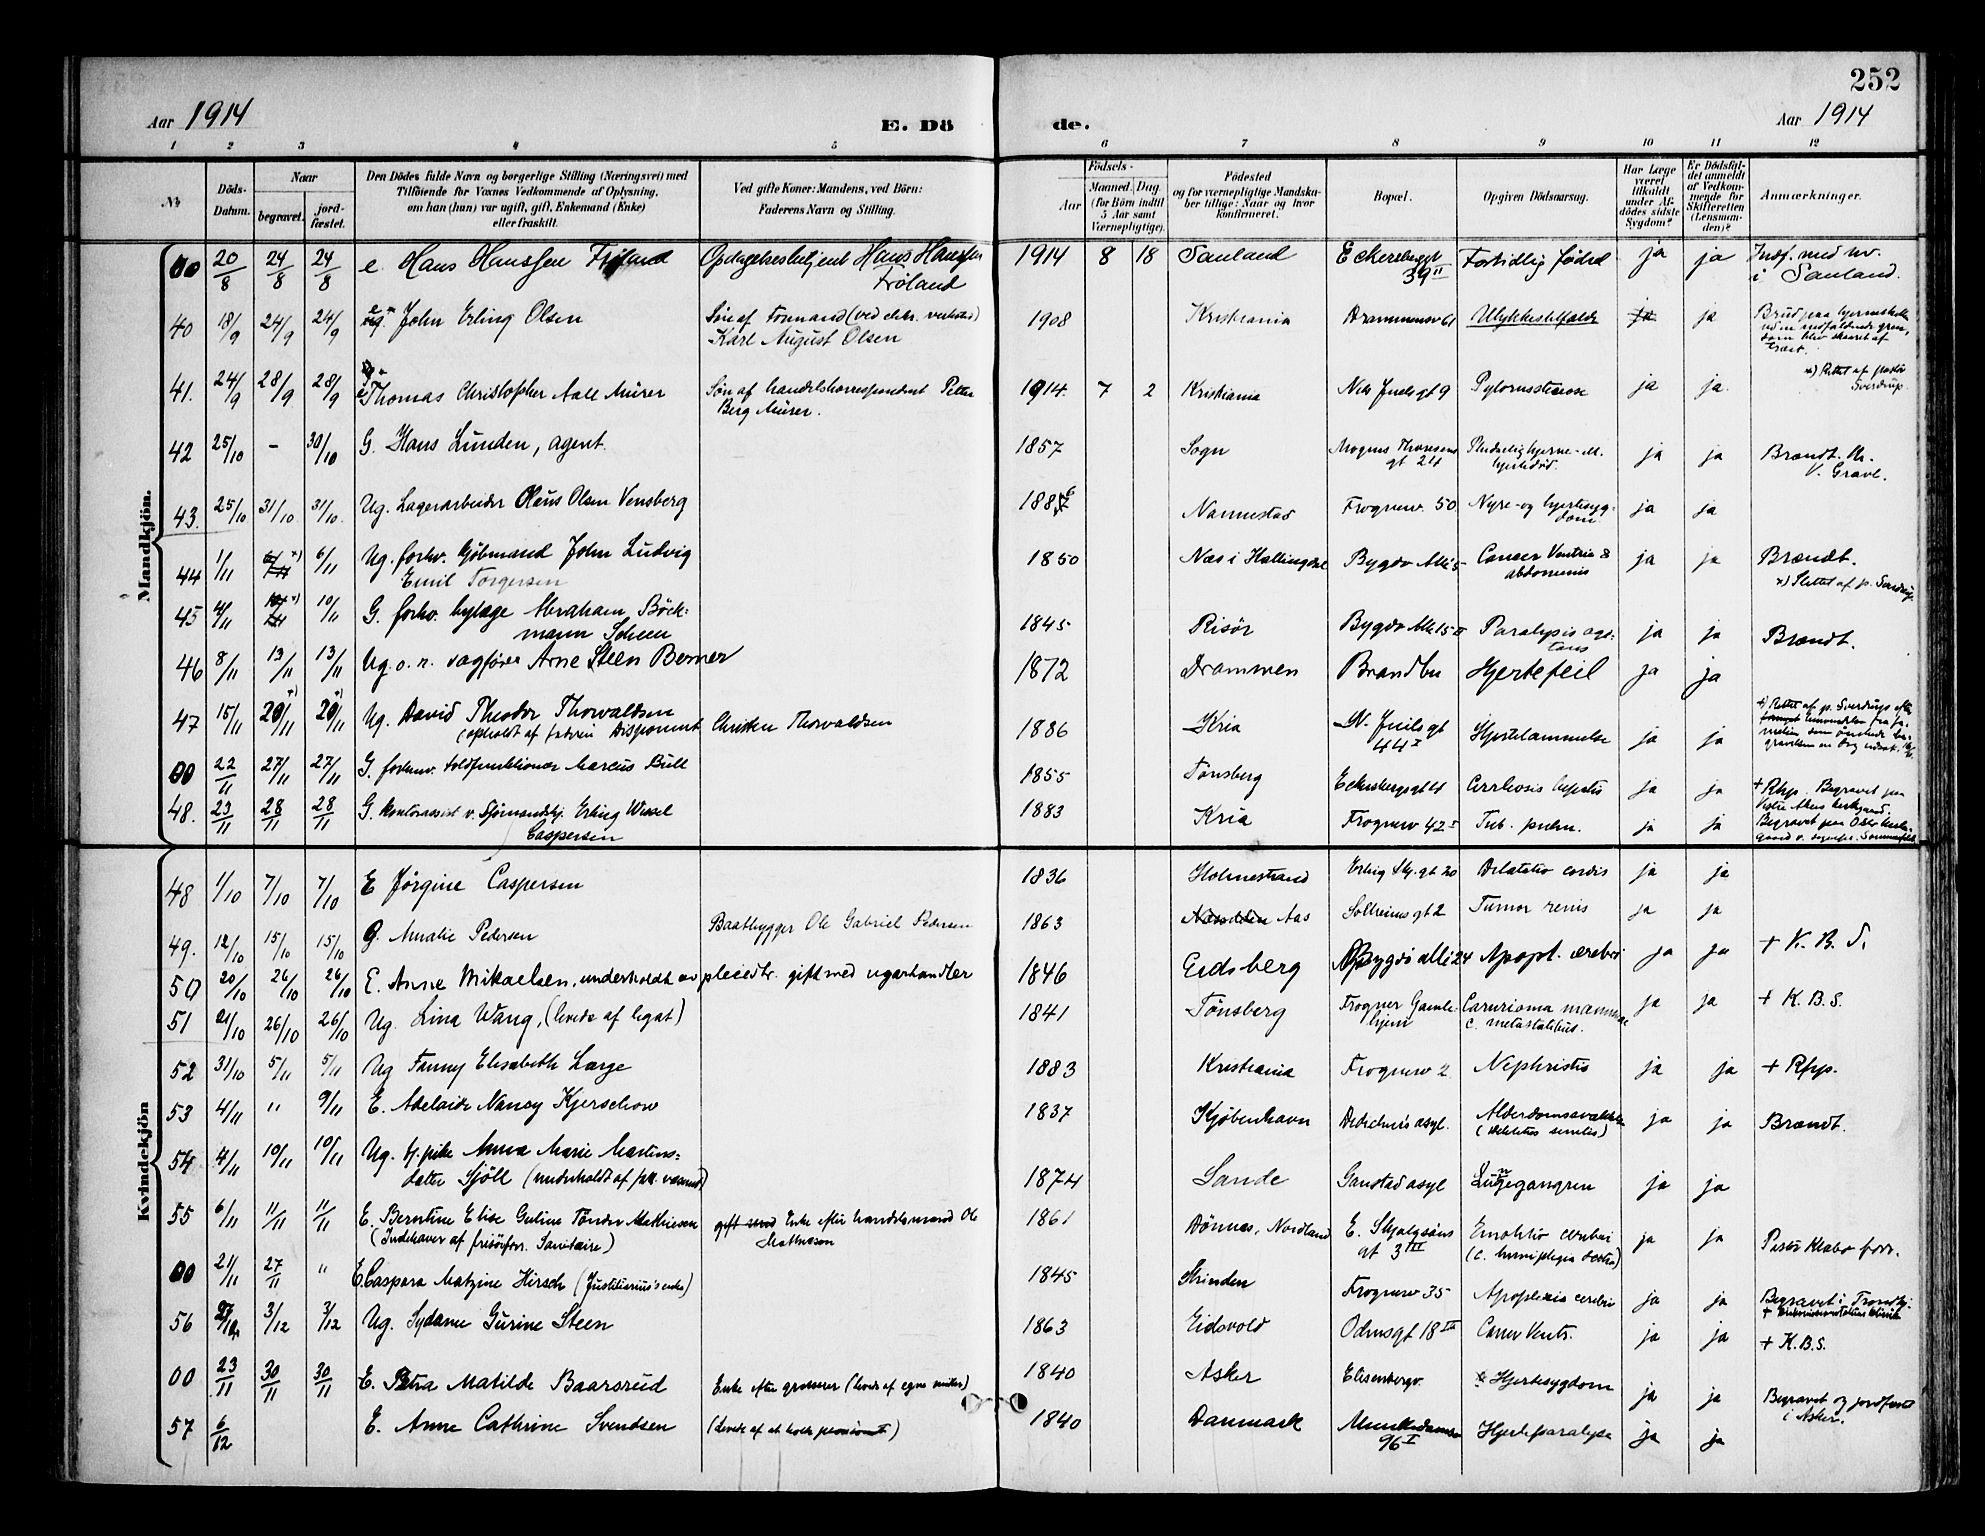 252
Aar 1914 E. Dö de. Aar 1914
1 2 3 4 5 6 7 8 9 10 11 12
№ Döds-Datum. Naar begravet. jordfæstet.
Den Dödes fulde Navn og borgerlige Stilling (Næringsvei) med
Tilföiende for Voxnes Vedkommende af Oplysning,
om han (hun) var ugift, gift, Enkemand (Enke)
eller fraskilt.
Ved gifte Koner: Mandens, ved Börn:
Faderens Navn og Stilling.
Födsels-
Aar Maaned. Dag.
(for Börn indtil 5 Aar samt Værnepligtige).
Födested
og for værnepligtige Mandskaber tillige: Naar og hvor konfirmeret.
Bopæl.
Opgiven Dödsaarsag.
Har Læge været tilkaldt under Afdödes sidste Sygdom?
Er Dödsfaldet anmeldt af Vedkommende for Skifteretten (Lensmanden)?
Anmærkninger.
Mandkjön.
00 20/8 24/8 24/8 e. Hans Hanssen Fröland Opdagelsesbetjent Hans Hanssen Fröland 1914 8 18 Sauland Eckersbergsgt 39 II Fortidlig födsel ja ja Indf. med nr. i Sauland.
40 18/9 24/9 24/9 John Erling Olsen Sön af Formand (ved elektr. verksted) Karl August Olsen 1908 Kristiania Drammensv 61 Ulykkestilfælde ja ja
41. 24/9 28/9 28/9 Thomas Christopher Aall Mürer Sön af handelskorrespondent Petter Berg Mürer. 1914. 7 2 Kristiania Nils Juels gt 9 Pylorusstenose ja ja. Rettet af pastor Sverdrup.
42 25/10 - 30/10 G. Hans Lunden, agent. 1857 Sogn Mogens Thorsens gt 24 Pludselig hjerne- el. hjertedöd. ja ja Brændt. V. Gravl.
43. 25/10 31/10. 31/10. Ug. Lagerarbeider Olaus Olsen Vensberg 1886 Nannestad Frognerv. 50 Nyre- og hjertesygdom ja ja
44 1/11 6/11 Ug. forhv. Gjöbmand John Ludvig Emil Torgersen 1850 Næs i Hallingdal Bygdö Allé 5 Cancer Ventric & abdominis ja ja Brændt. x) Slettet af p. Sverdrup.
45 4/11 10/11 G. forhv. bylæge Abraham Böckmann Scheen 1845 Risör Bygdö Allé 15 II Paralysis agitans ja ja Brændt.
46 8/11 13/11 13/11 Ug. o. r. sagförer Arne Steen Berner 1872 Drammen Brandbu Hjertefeil ja ja
47 15/11 20/11 20/11 Ug. David Theodor Thorvaldsen (opholdt af faderen Disponent Christen Thorvaldsen 1886 Kria N. Juels gt 44 I Hjertelammelse ja ja
00 22/11 27/11 27/11 G. forhenv. toldfunktionær Marcus Bull 1855 Tönsberg Eckersbergsgt 4 Cirrhosis hepatis ja ja + Rhp. Begravet paa Vestre Akers kirkegaard.
48. 23/11 28/11 28/11 G. kontorassist v. Sjömandsk. Erling Wessel Caspersen 1883 Kria Frognerv 42 I Tub. pulm. ja ja Begravet paa Oslo kirkegaard v. sognepr. Sommerfeldt
Kvindekjön
48 1/10 7/10 7/10 E Jörgine Caspersen 1836 Holmestrand Erling Skj. gt 20 Dilatatio cordis ja ja
49. 12/10 15/10 15/10 G. Amalie Pedersen Baatbygger Ole Gabriel Pedersen 1863 Aas Solheimsgt 2 Tumor renis ja ja + K. B. S.
50 20/10 26/10 26/10 E. Anne Mikaelsen, underholdt av pleiedtr. gift med ugarhandler 1846 Eidsberg Bygdö allé 24 Apopl. cerebri ja ja
51 21/10 26/10 26/10 Ug. Lina Wang, (levede af legat) 1841 Tönsberg Frogner Gamlehjem Carcinoma mammae c. metastatibus. ja ja + K. B. S.
52 31/10 5/11 5/11 Ug Fanny Elisabeth Large 1883 Kristiania Frognerv 2. Nephritis ja ja + Rhp.
53 4/11 " 9/11 E. Adelaide Nancy Kjerschow 1837 Kjöbenhavn Dedichens asyl. Alderdomssvækkelse ja ja Brændt.
54 4/11 10/11 10/11 Ug. tj. pike Anna Marie Martinsdatter Sjöll (underholdt af fattigvæsenet) 1874 Sande Gaustad asyl Lungegangren ja ja
55 6/11 11/11 11/11 E. Berntine Elise Guline Tönder Mathiesen (Indehaver af frisörforr. Sanitaire) gift med Enke efter handelsmand Ole Mathiesen 1861 Dönnes, Nordland E. Skjalgssöns gt 3 III Embolia cerebri (c. hemiplegia dextra) ja ja
00 21/11 27/11 " E. Caspara Matzine Hirsch (Justitiarius's enke) 1845 Strinden Frognerv 35 Apoplexia cerebri ja ja Begravet i Trondhj.
56 3/12 3/12 Ug. Sydame Gurine Steen 1863 Eidsvold Odinsgt 18 III Cancer Ventr. ja ja + K. B. S.
00 23/11 30/11 30/11 E. Petra Matilde Baarsrud Enke efter grosserer (lever af egne midler) 1840 Asker Elisenbergv. Hjertesygdom ja ja Begravet og jordfæstet i Asker.
57 6/12 E. Anne Cathrine Svendsen 1840 Danmark Munkedamsv 96 I Hjerteparalyse ja ja